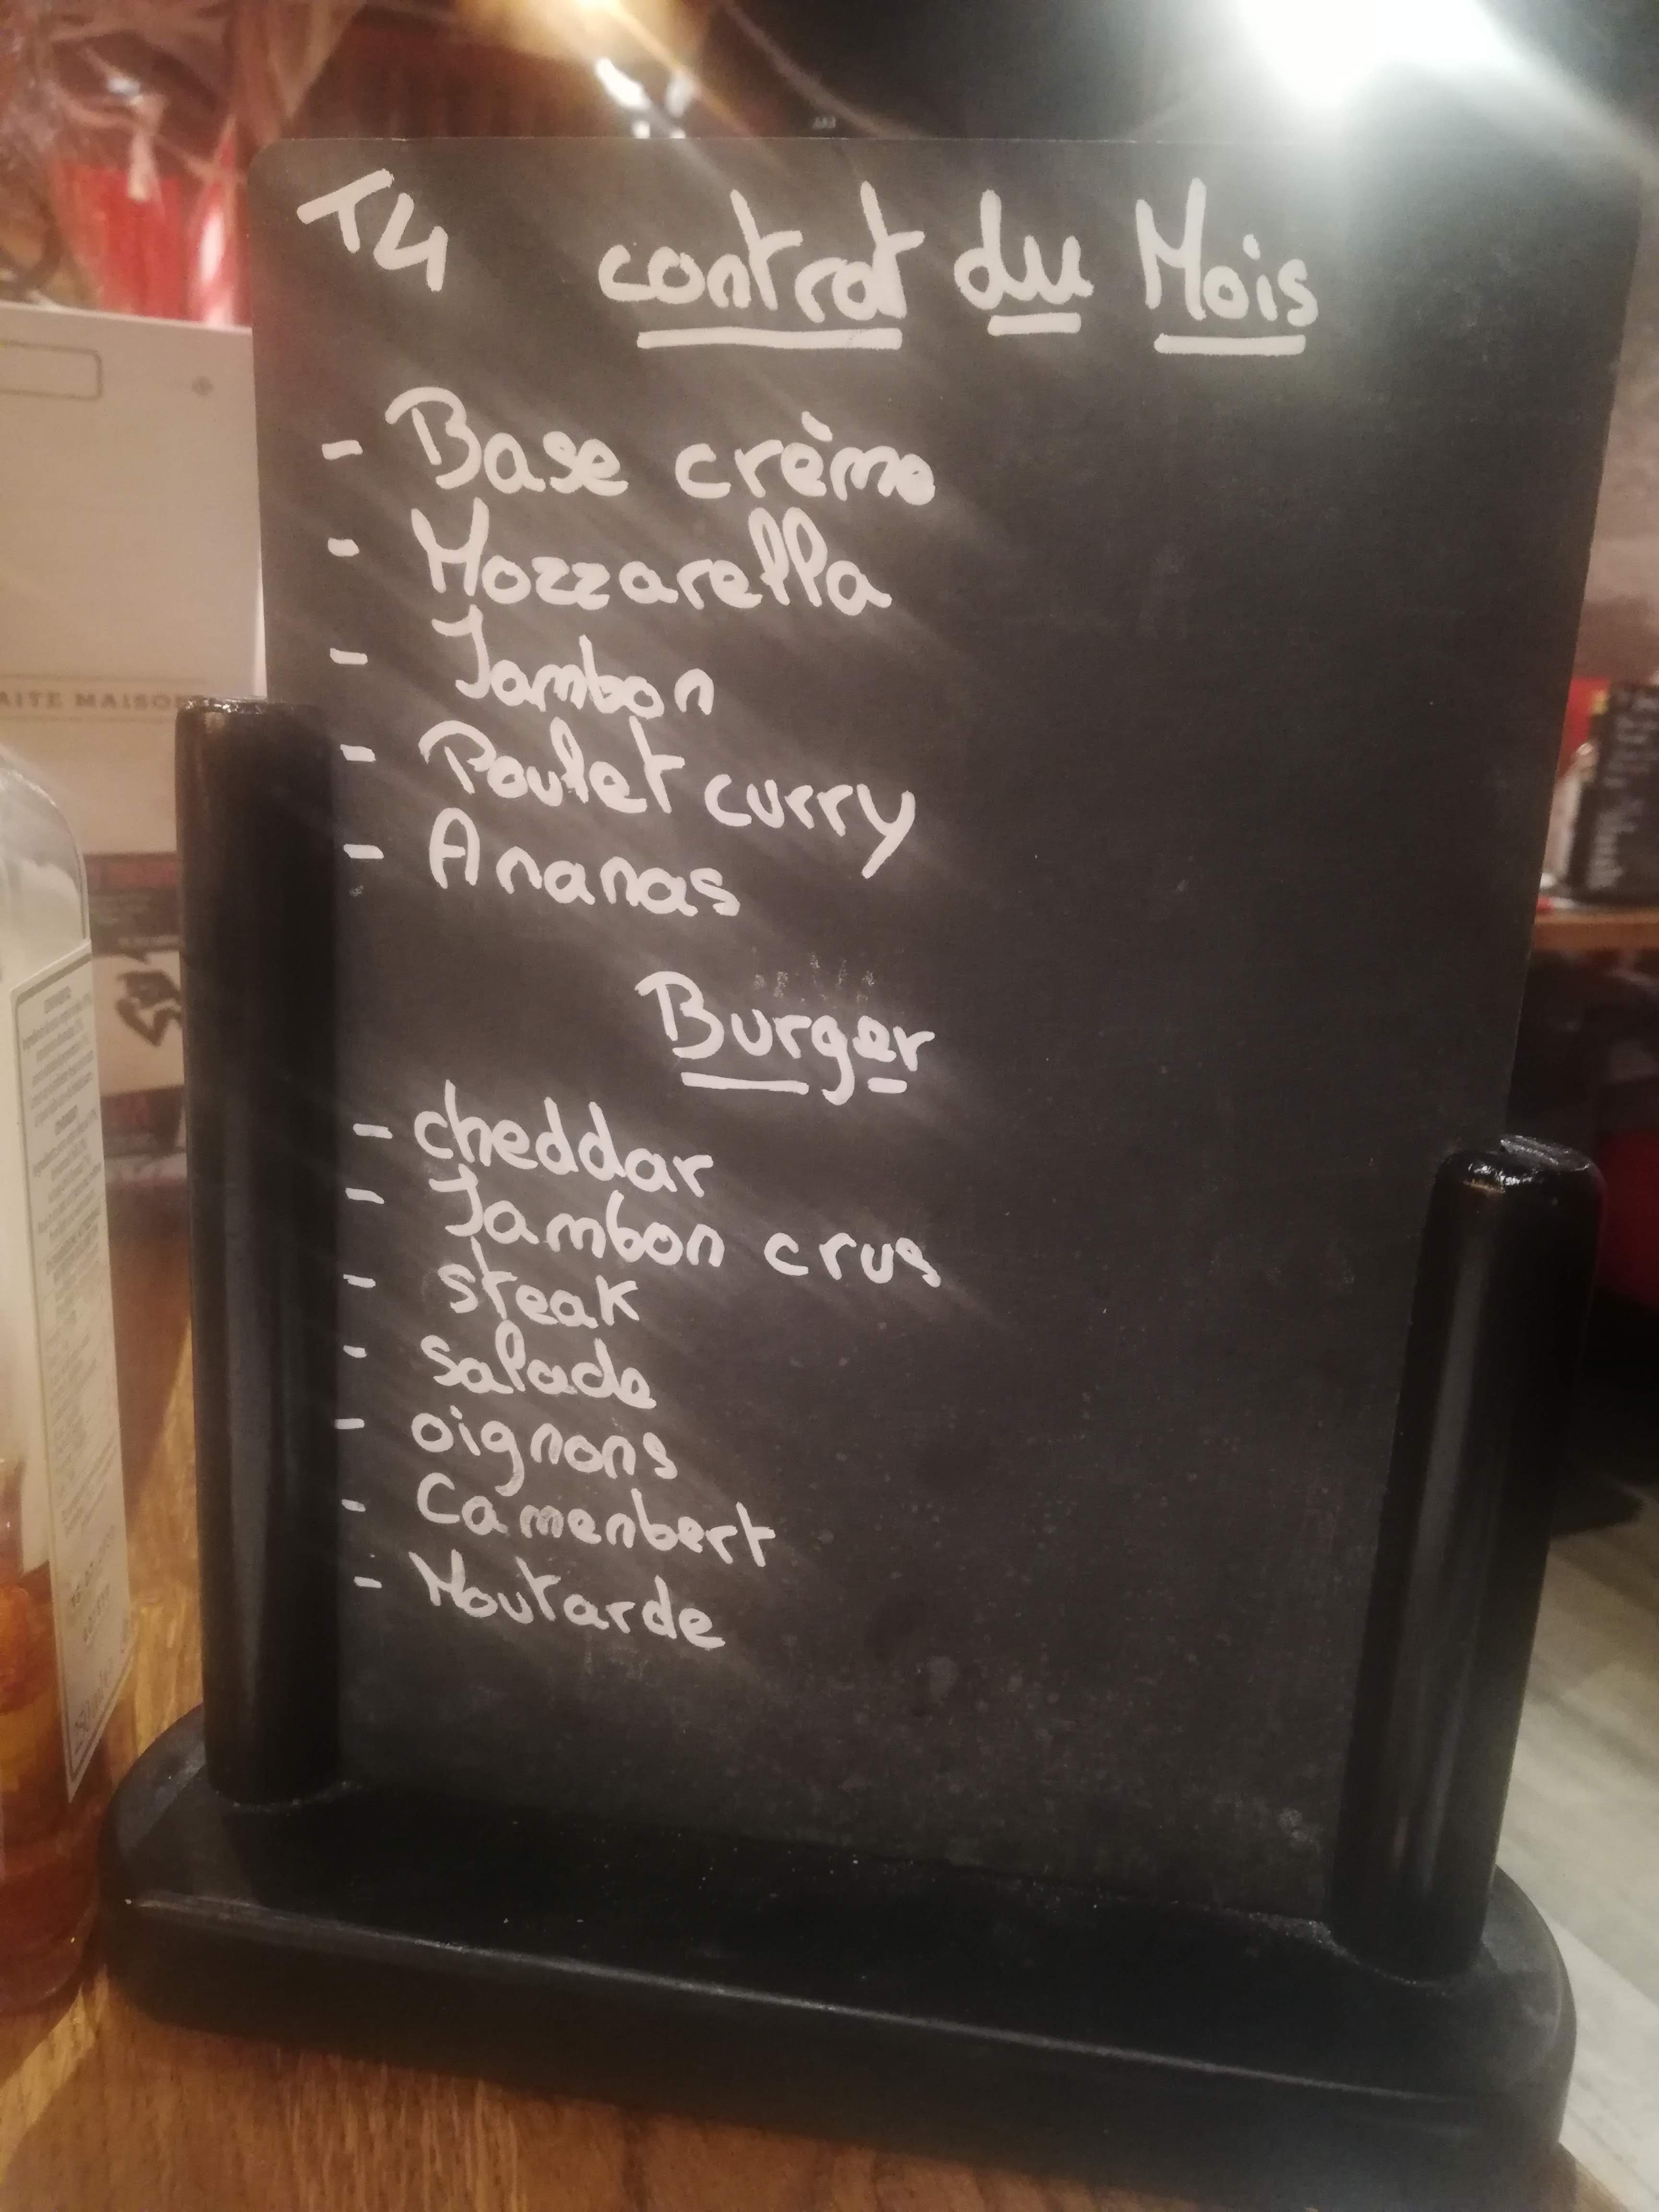 T4 contrat du Mois
- Base crème
- Mozzarella
- Jambon
- Poulet curry
- Ananas
Burger
- cheddar
- Jambon crus
- steak
- salade
- oignons
- Camenbert
- Moutarde
AITE MAISON